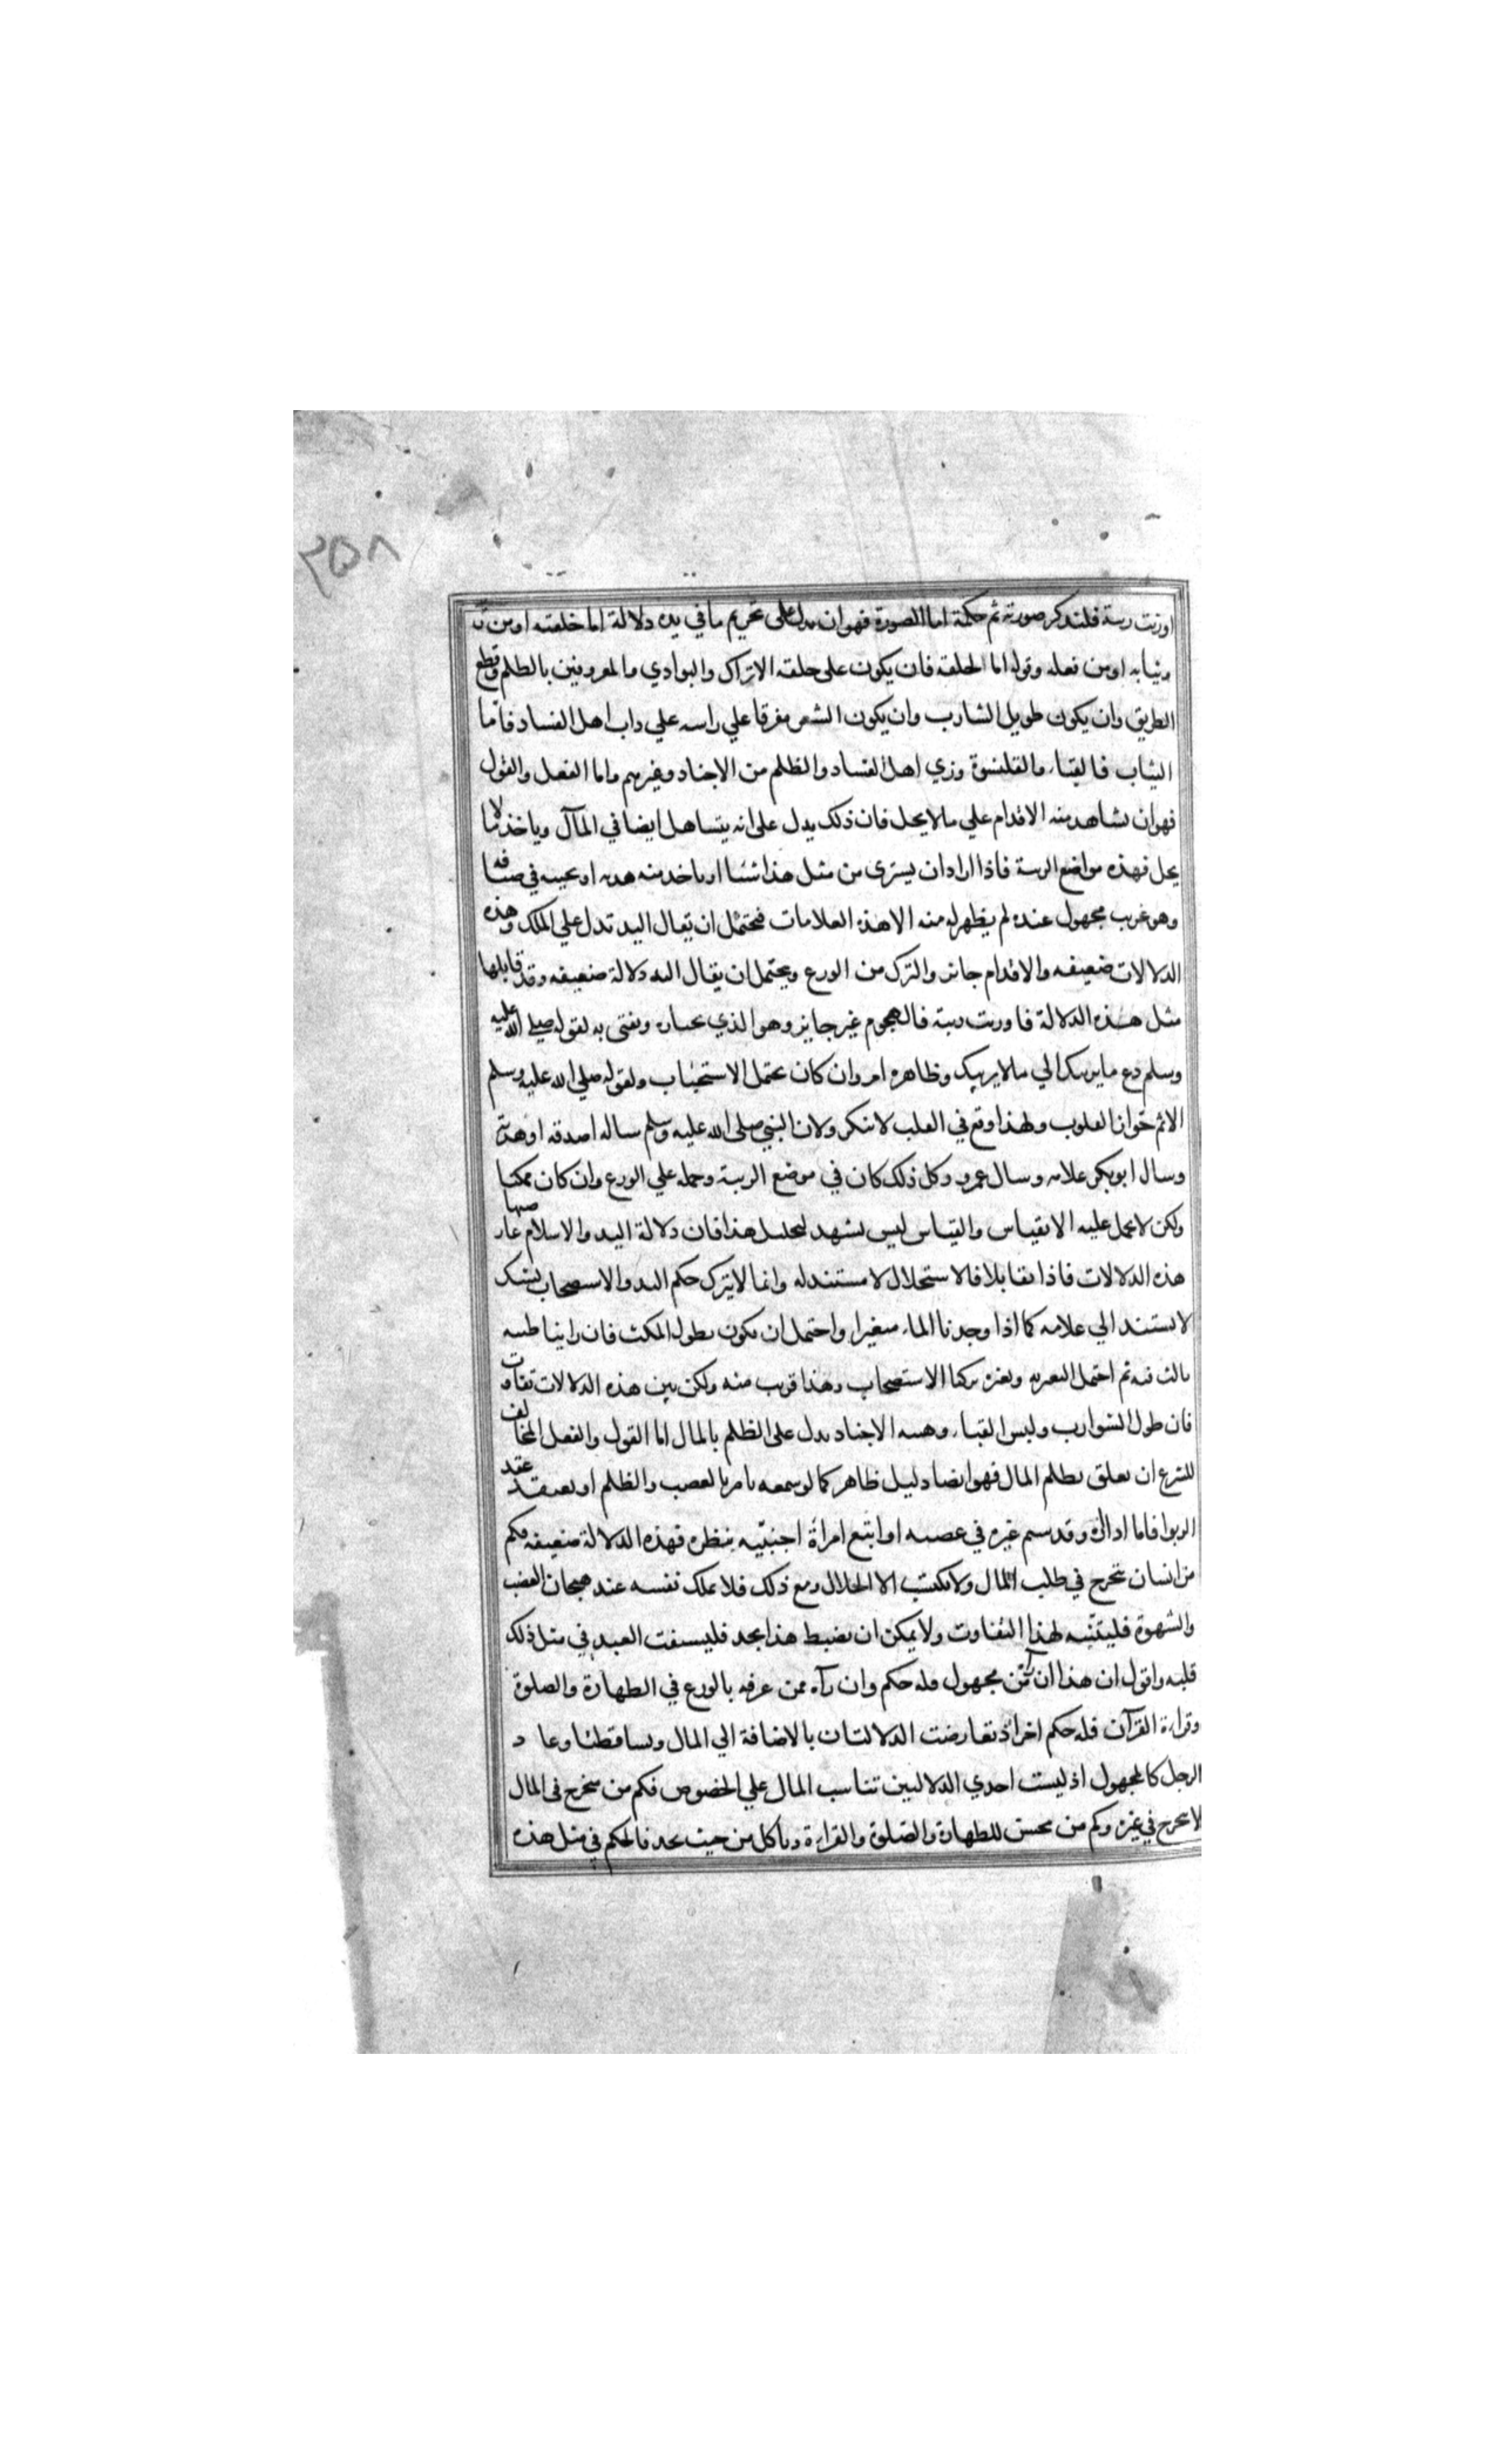 ٢٥٨
اورثت ريبة فلنذكر صورته ثم حكمه اما الصورة فهو ان يدل على تحريم ما في يده دلالة اما خلقته او من
وثيابه او من فعله وقوله اما الخلقة فان يكون على خلقة الاتراك والبوادي والمعروفين بالظلم وقطع
الطريق وان يكون طويل الشارب وان يكون الشعر مفرقا علي راسه علي داب اهل الفساد فاما
الثياب فالقباء والقلنسوة وزي اهل الفساد والظلم من الاجناد وغيرهم واما الفعل والقول
فهو ان يشاهد منه الاقدام علي ما لا يحل فان ذلك يدل على انه يتساهل ايضا في المال وياخذ ما لا
يحل فهذه مواضع الريبة فاذا اراد ان يشتري من مثل هذا شيئا او ياخذ منه هديه او يجيبه في ضيافه
وهو غريب مجهول عنده لم يظهر له منه الا هذه العلامات فيحتمل ان يقال اليد تدل علي الملك وهذه
الدلالات ضعيفه والاقدام جائز والترك من الورع ويحتمل ان يقال اليد دلالة ضعيفه وقد قابلها
مثل هذه الدلالة فاورثت ريبة فالهجوم غير جايز وهو الذي نختاره ونفتى به لقوله صلي الله عليه
وسلم دع ما يريبك الي ما لا يريبك وظاهره امر وان كان يحتمل الاستحباب ولقوله صلي الله عليه وسلم
الاثم حواز القلوب ولهذا وقع في القلب لا ينكر ولان النبي صلى الله عليه وسلم ساله اصدقه او هديه
وسال ابو بكر غلامه وسال عمر وكل ذلك كان في موضع الريبة وحمله علي الورع وان كان ممكنا
ولكن لا يحمل عليه الا بقياس والقياس ليس يشهد لتحليل هذا فان دلالة اليد والاسلام عارضها
هذه الدلالات فاذا تقابلا فالاستحلال لا مستند له وانما لا يترك حكم اليد والاستصحاب بشك
لا يستند الي علامه كما اذا وجدنا الماء متغيرا واحتمل ان يكون بطول المكث فان راينا ظبيه
بالت فيه ثم احتمل التغير به وبغيره تركنا الاستصحاب وهذا قريب منه ولكن بين هذه الدلالات تفاوت
فان طول الشوارب ولبس القباء وهيئه الاجناد يدل على الظلم بالمال اما القول والفعل المخالف
للشرع ان تعلق بظلم المال فهو ايضا دليل ظاهر كما لو سمعه يامر بالغصب والظلم او يعقد عقد
الربوا فاما اذا رآه وقد شتم غيره في غضبه او اتبع امرأة اجنبيّه بنظره فهذه الدلالة ضعيفه فكم
من انسان يتحرج في طلب المال ولا يكتسب الا الحلال ومع ذلك فلا يملك نفسه عند هيجان الغضب
والشهوة فليتنبه لهذا التفاوت ولا يمكن ان يضبط هذا بحد فليستفت العبد في مثل ذلك
قلبه واقول ان هذا ان رآه من مجهول فله حكم وان رآه ممن عرفه بالورع في الطهارة والصلوة
وقراءة القرآن فله حكم اخر اذ تعارضت الدلالتان بالاضافة الي المال وتساقطتا وعاد
الرجل كالمجهول اذ ليست احدي الدلالتين تناسب المال علي الخصوص فكم من متحرج في المال
لا يتحرج في غيره وكم من محسن للطهارة والصّلوة والقراءة وياكل من حيث يجد فالحكم في مثل هذه